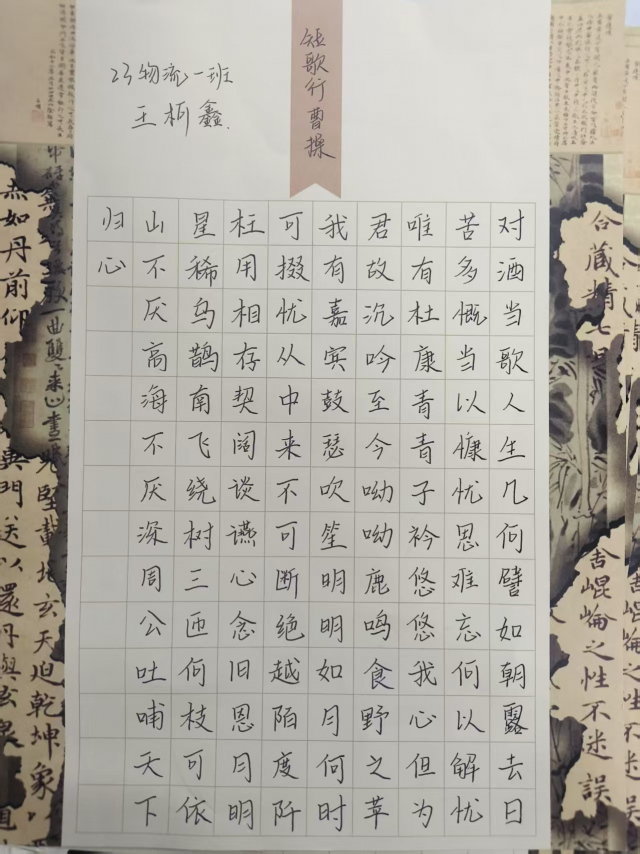 短歌行 曹操
23物流一班
王柯鑫
对酒当歌人生几何譬如朝露去日
苦多慨当以慷忧思难忘何以解忧
唯有杜康青青子衿悠悠我心但为
君故沉吟至今呦呦鹿鸣食野之苹
我有嘉宾鼓瑟吹笙明明如月何时
可掇忧从中来不可断绝越陌度阡
枉用相存契阔谈䜩心念旧恩月明
星稀乌鹊南飞绕树三匝何枝可依
山不厌高海不厌深周公吐哺天下
归心
合藏精
崐崘之性不迷誤
天迫乾坤象
如丹前仰
門送以還丹與